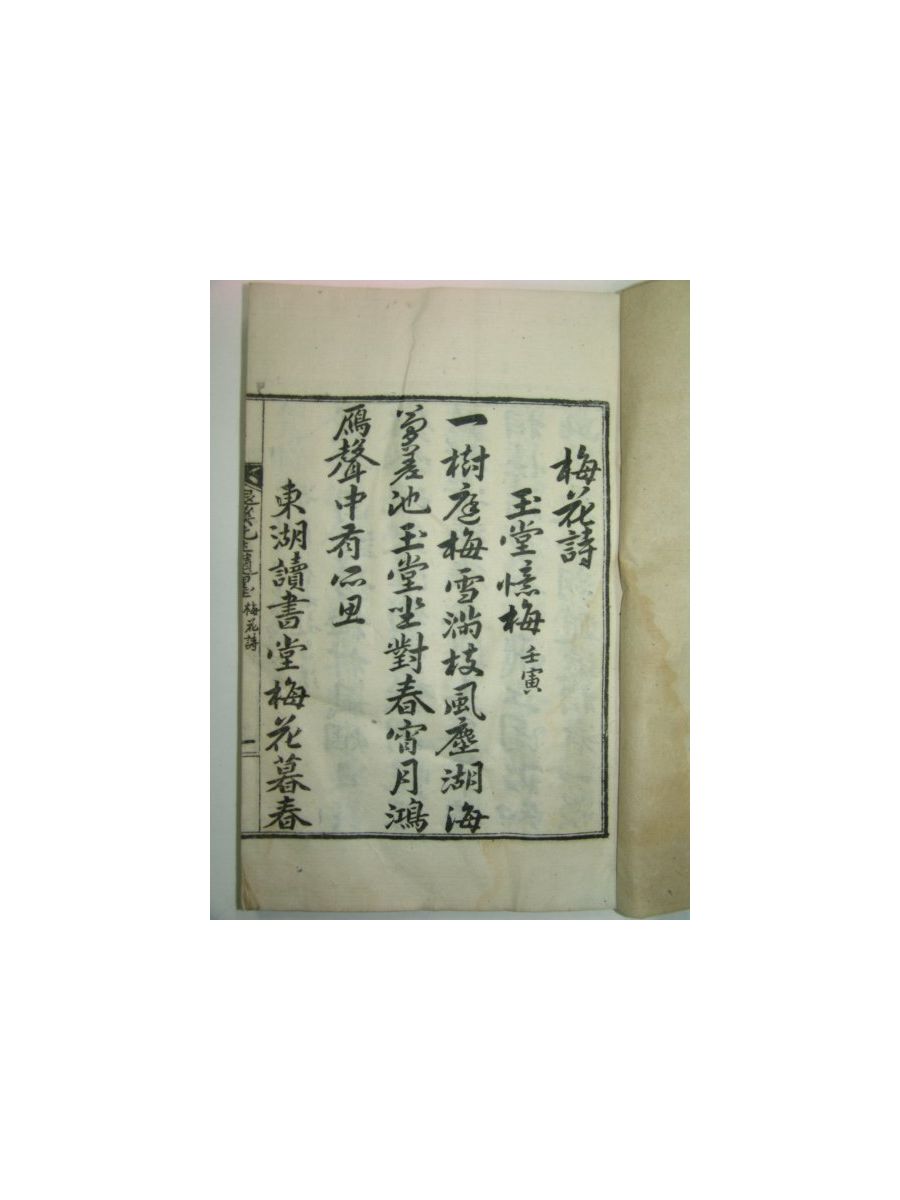 梅花詩
玉堂憶梅 壬寅
一樹庭梅雪滿枝風塵湖海
夢差池玉堂坐對春宵月鴻
鴈聲中有所思
東湖讀書堂梅花暮春
退溪先生遺墨 梅花詩 一